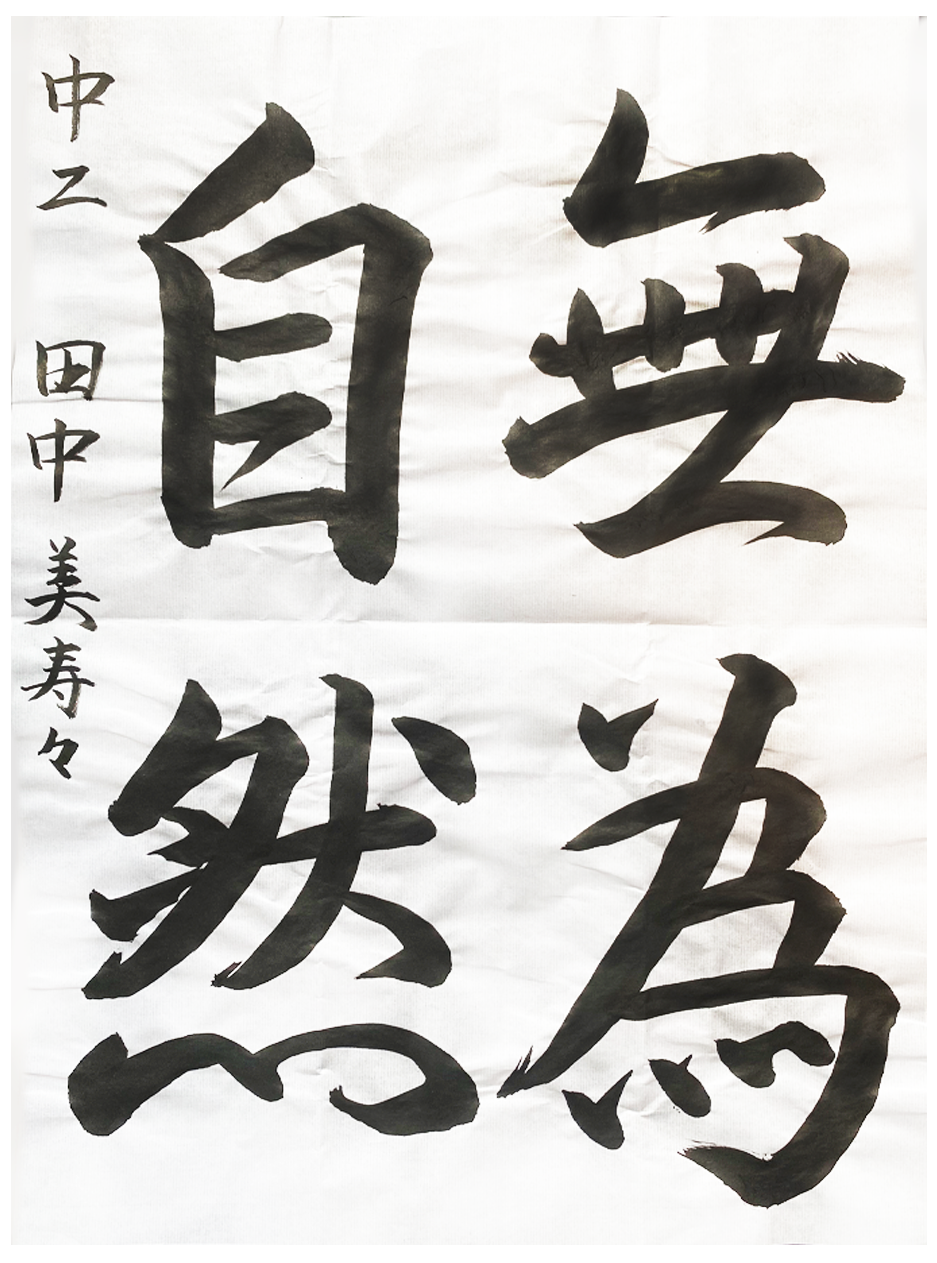 無為
自然
中二 田中美寿々